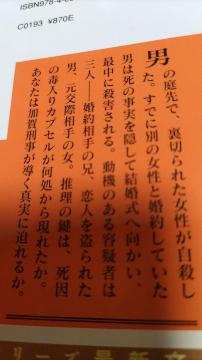 ISBN978-4-0
C0193 ¥870E
男の庭先で、裏切られた女性が自殺し
た。すでに別の女性と婚約していた
男は死の事実を隠して結婚式へ向かい、
最中に殺害される。動機のある容疑者は
三人――婚約相手の兄、恋人を盗られた
男、元交際相手の女。推理の鍵は、死因
の毒入りカプセルが何処から現れたか。
あなたは加賀刑事が導く真実に迫れるか。